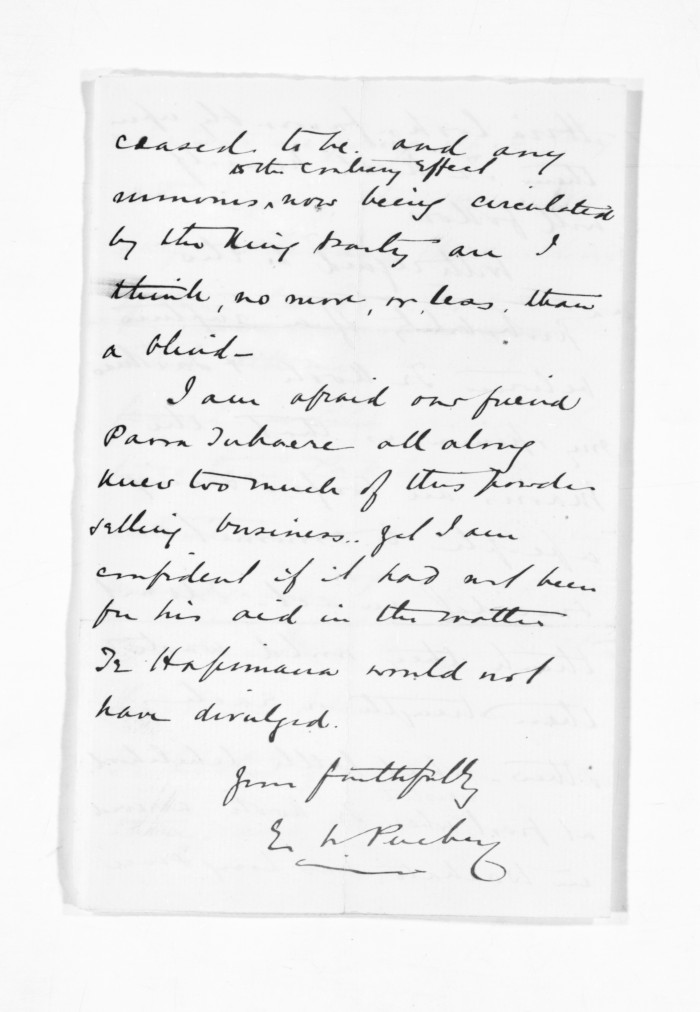 ceased to be. and any
to the contrary effect
rumours ^ now being circulated
by the King Party are I
think, no more, or, less, than
a blind—
I am afraid our friend
Paora Tuhaere all along
knew too much of this powder
selling business.. yet I am
confident if it had not been
for his aid in the matter
Te Hapimana would not
have divulged.
Yours faithfully
E. W Puckey